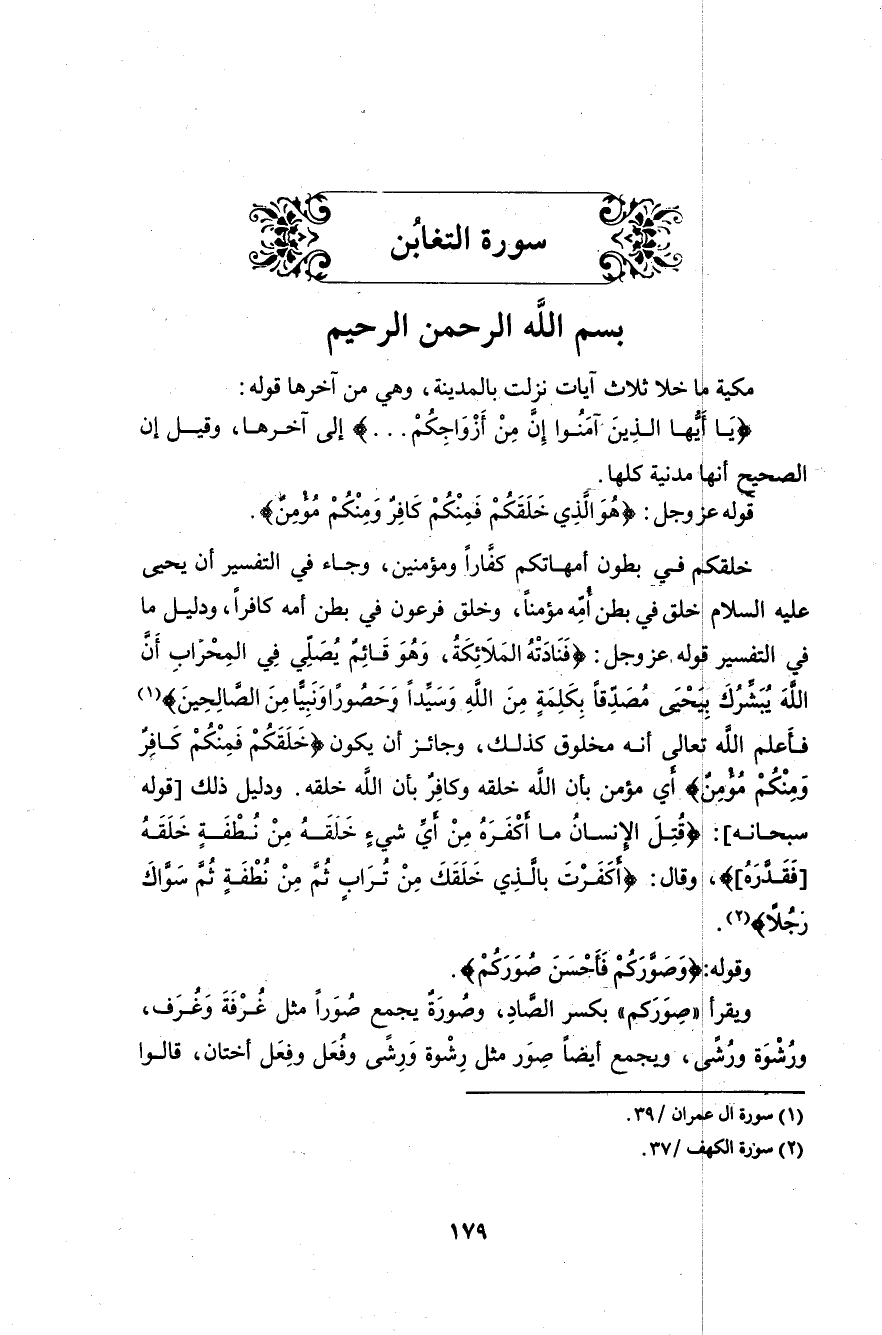 سورة التغابُن
بسم اللَّه الرحمن الرحيم
مكية ما خلا ثلاث آيات نزلت بالمدينة، وهي من آخرها قوله:
﴿يَا أَيُّهَا الذِينَ آمَنُوا إِنَّ مِنْ أَزْوَاجِكُمْ...﴾ إلى آخرها، وقيل إن
الصحيح أنها مدنية كلها.
قوله عز وجل: ﴿هُوَ الَّذِي خَلَقَكُمْ فَمِنْكُمْ كَافِرٌ وَمِنْكُمْ مُؤْمِنٌ﴾.
خلقكم في بطون أمهاتكم كفَّاراً ومؤمنين، وجاء في التفسير أن يحيى
عليه السلام خلق في بطن أُمِّه مؤمناً، وخلق فرعون في بطن أمه كافراً، ودليل ما
في التفسير قوله عز وجل: ﴿فَنَادَتْهُ المَلَائِكَةُ، وَهُوَ قَائِمٌ يُصَلِّي فِي المِحْرَابِ أَنَّ
اللَّهَ يُبَشِّرُكَ بِيَحْيَى مُصَدِّقاً بِكَلِمَةٍ مِنَ اللَّهِ وَسَيِّداً وَحَصُورًا وَنَبِيًّا مِنَ الصَّالِحِينَ﴾(١)
فأعلم اللَّه تعالى أنه مخلوق كذلك، وجائز أن يكون ﴿خَلَقَكُمْ فَمِنْكُمْ كَافِرٌ
وَمِنْكُمْ مُؤْمِنٌ﴾ أَي مؤمن بأن اللَّه خلقه وكافِرٌ بأن اللَّه خلقه. ودليل ذلك [قوله
سبحانه]: ﴿قُتِلَ الإِنسانُ ما أَكْفَرَهُ مِنْ أَيِّ شيءٍ خَلَقَهُ مِنْ نُطْفَةٍ خَلَقَهُ
[فَقَدَّرَهُ]﴾، وقال: ﴿أَكَفَرْتَ بالَّذِي خَلَقَكَ مِنْ تُرَابٍ ثُمَّ مِنْ نُطْفَةٍ ثُمَّ سَوَّاكَ
رَجُلًا﴾(٢).
وقوله: ﴿وَصَوَّرَكُمْ فَأَحْسَنَ صُوَرَكُمْ﴾.
ويقرأ «صِوَرَكم» بكسر الصَّادِ، وصُورَةٌ يجمع صُوَراً مثل غُرْفَةَ وَغُرَف،
ورُشْوَة ورُشًى، ويجمع أيضاً صِوَر مثل رِشْوة وَرِشًى وفُعَل وفِعَل أختان، قالوا
(١) سورة ال عمران /٣٩.
(٢) سورة الكهف /٣٧.
١٧٩